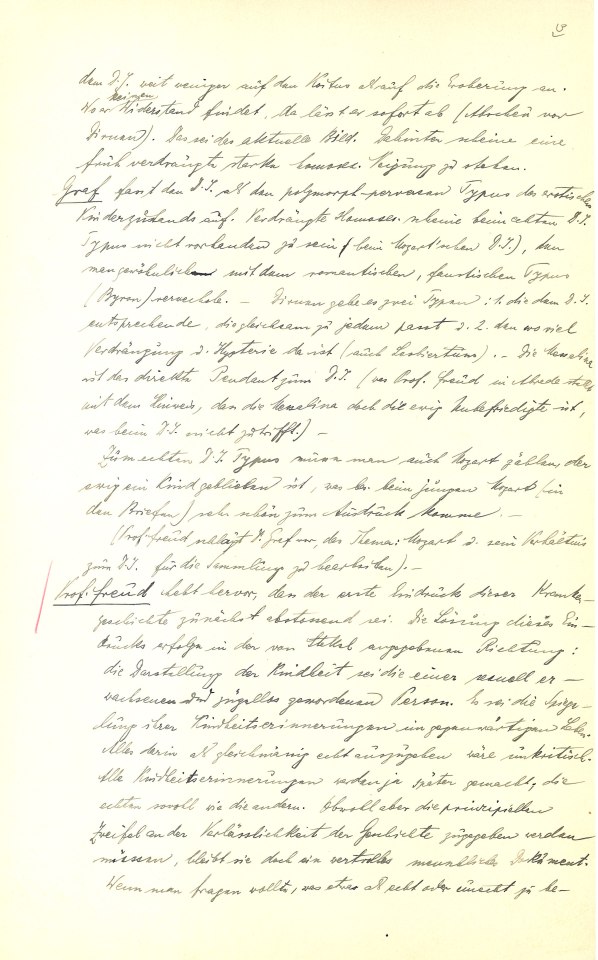 13
dem D.J. weit weniger auf den Koitus als auf die Eroberung an.
Wo er keinen Widerstand findet, da lässt er sofort ab (Abscheu vor
Dirnen). Das sei das aktuelle Bild. Dahinter scheine eine
früh verdrängte starke homosex. Neigung zu stehen.
Graf fasst den D.J. als den polymorph-perversen Typus des erotischen
Kinderzustands auf. Verdrängte Homosex. scheine beim echten D.J.
Typus nicht vorhanden zu sein (beim Mozart'schen D.J.), den
man gewöhnlich mit dem romantischen, faustischen Typus
(Byron) verwechsle. — Dirnen gebe es zwei Typen: 1. die dem D.J.
entsprechende, die gleichsam zu jedem passt u. 2. den wo viel
Verdrängung u. Hysterie da ist (auch Lesbiertum). — Die Messalina
ist das direkte Pendant zum D.J. (was Prof. Freud in Abrede stellt
mit dem Hinweis, dass die Messalina doch die ewig Unbefriedigte ist,
was beim D.J. nicht zutrifft.) —
Zum echten D.J. Typus müsse man auch Mozart zählen, der
ewig ein Kind geblieben ist, was bes. beim jungen Mozart (in
den Briefen) sehr schön zum Ausdruck komme. —
(Prof. Freud schlägt D. Graf vor, das Thema: Mozart u. sein Verhältnis
zum D.J. für die Sammlung zu bearbeiten). —
Prof. Freud hebt hervor, dass der erste Eindruck dieser Kranken-
geschichte zunächst abstossend sei. Die Lösung dieses Ein-
drucks erfolge in der von Stekel angegebenen Richtung:
die Darstellung der Kindheit sei die einer sexuell er-
wachsenen und zügellos gewordenen Person. Es sei die Spiege-
lung ihrer Kindheitserinnerungen im gegenwärtigen Leben.
Alles darin als gleichmässig echt auszugeben wäre unkritisch.
Alle Kindheitserinnerungen werden ja später gemacht, die
echten sowohl wie die andern. Obwohl aber die prinzipiellen
Zweifel an der Verlässlichkeit der Geschichte zugegeben werden
müssen, bleibt sie doch ein wertvolles menschliches Dokument.
Wenn man fragen wollte, was etwa als echt oder unecht zu be-